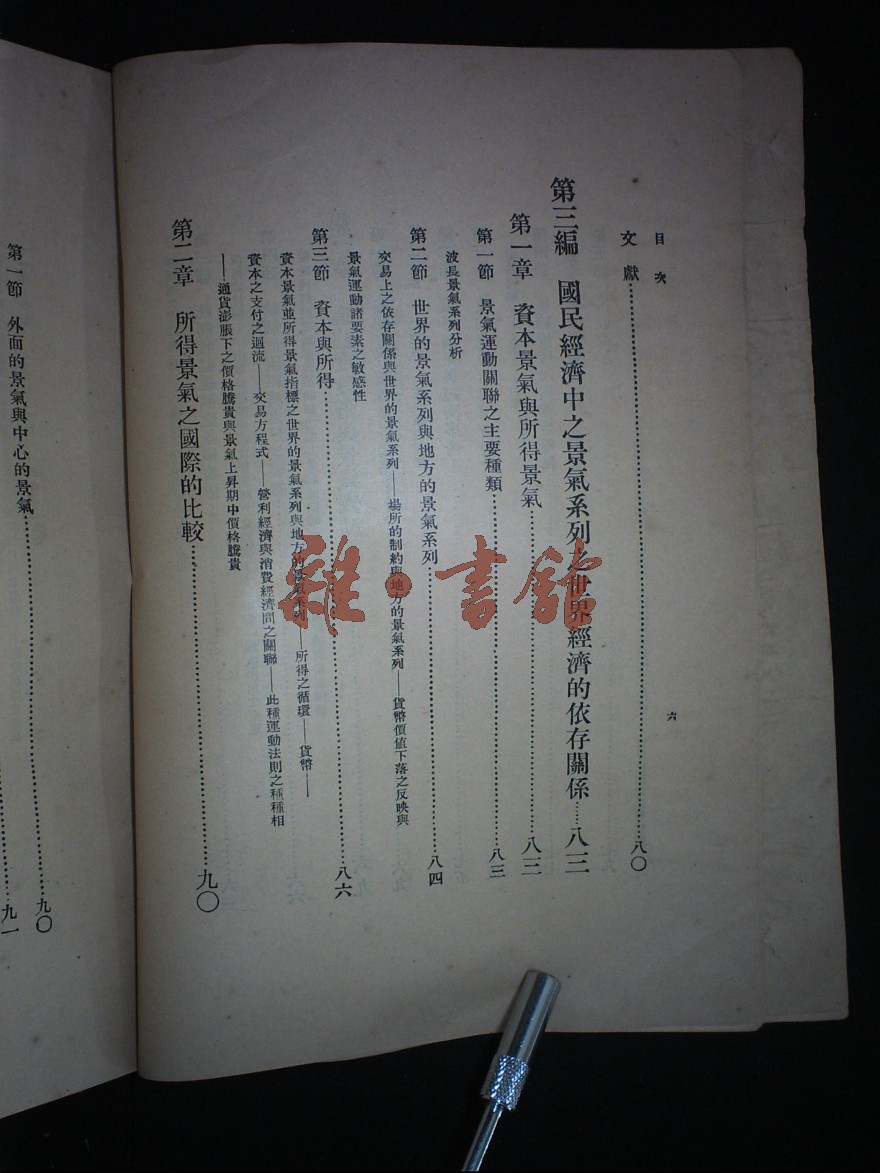 目次
六
文獻……八〇
第三編 國民經濟中之景氣系列之世界經濟的依存關係……八三
第一章 資本景氣與所得景氣……八三
第一節 景氣運動關聯之主要種類……八三
波長景氣系列分析
第二節 世界的景氣系列與地方的景氣系列……八四
交易上之依存關係與世界的景氣系列——場所的制約與地方的景氣系列——貨幣價值下落之反映與
景氣運動諸要素之敏感性
第三節 資本與所得……八六
資本景氣並所得景氣指標之世界的景氣系列與地方的景氣系列——所得之循環——貨幣——
資本之支付之迴流——交易方程式——營利經濟與消費經濟間之關聯——此種運動法則之種種相
——通貨澎脹下之價格騰貴與景氣上昇期中價格騰貴
第二章 所得景氣之國際的比較……九〇
第一節 外面的景氣與中心的景氣……九〇
……九一
雜·書館